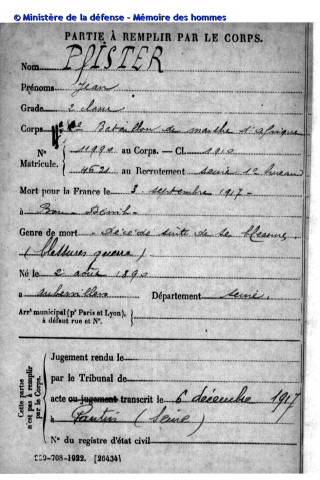 © Ministère de la défense - Mémoire des hommes
PARTIE À REMPLIR PAR LE CORPS.
Nom POISTER
Prénoms Jean
Grade 2 classe
Corps Bataillon de marche d'Afrique
N° 11992 au Corps. — Cl. 1910
Matricule. 4621 au Recrutement Seine 1er bureau
Mort pour la France le 3 septembre 1917
à Bou-Denib
Genre de mort Décédé suite de se blessures
(blessures guerre)
Né le 2 août 1890
à Aubervilliers Département Seine
Arrt municipal (pr Paris et Lyon),
à défaut rue et N°.
Cette partie
n'est pas à remplir
par le Corps.
Jugement rendu le
par le Tribunal de
acte ou jugement transcrit le 6 décembre 1917
à Pantin (Seine)
N° du registre d'état civil
-708-1922. [26434]